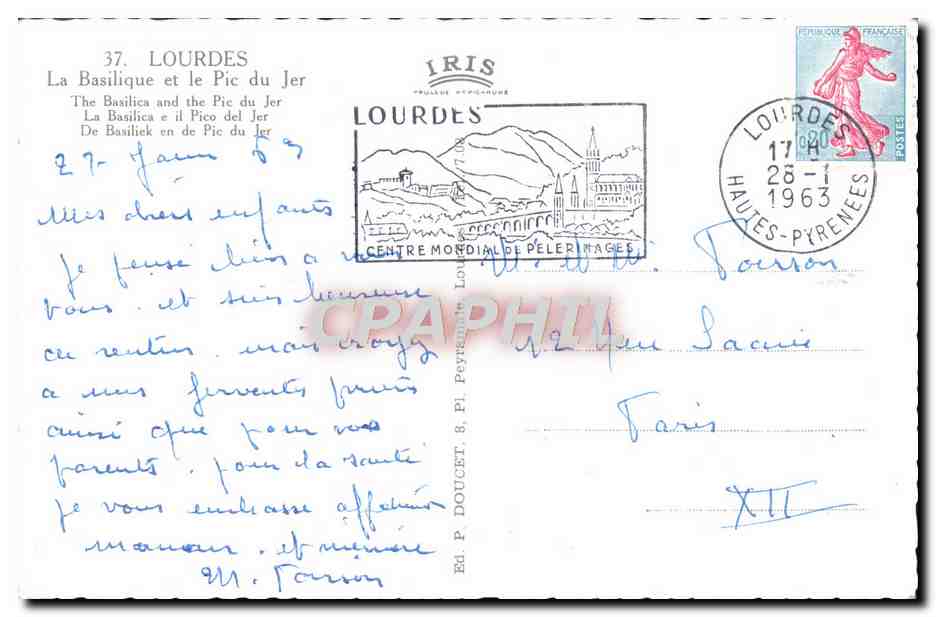 37. LOURDES
La Basilique et le Pic du Jer
The Basilica and the Pic du Jer
La Basilica e il Pico del Jer
De Basiliek en de Pic du Jer
IRIS
LOURDES
CENTRE MONDIAL DE PELERINAGES
RÉPUBLIQUE FRANÇAISE
0,20
POSTES
LOURDES
17 H
28 - 1
1963
HAUTES-PYRENEES
63
Mes chers enfants
je pense bien a
vous. et suis heureuse
mais croyez
a mes ferventes
ainsi que pour vos
parents. pour la santé
je vous embrasse
maman. et
M. Poisson
Ed. P. DOUCET, 8, Pl. Peyramale, Lourdes
M. et M. Poisson
12
Paris
XII
CPAPHIL